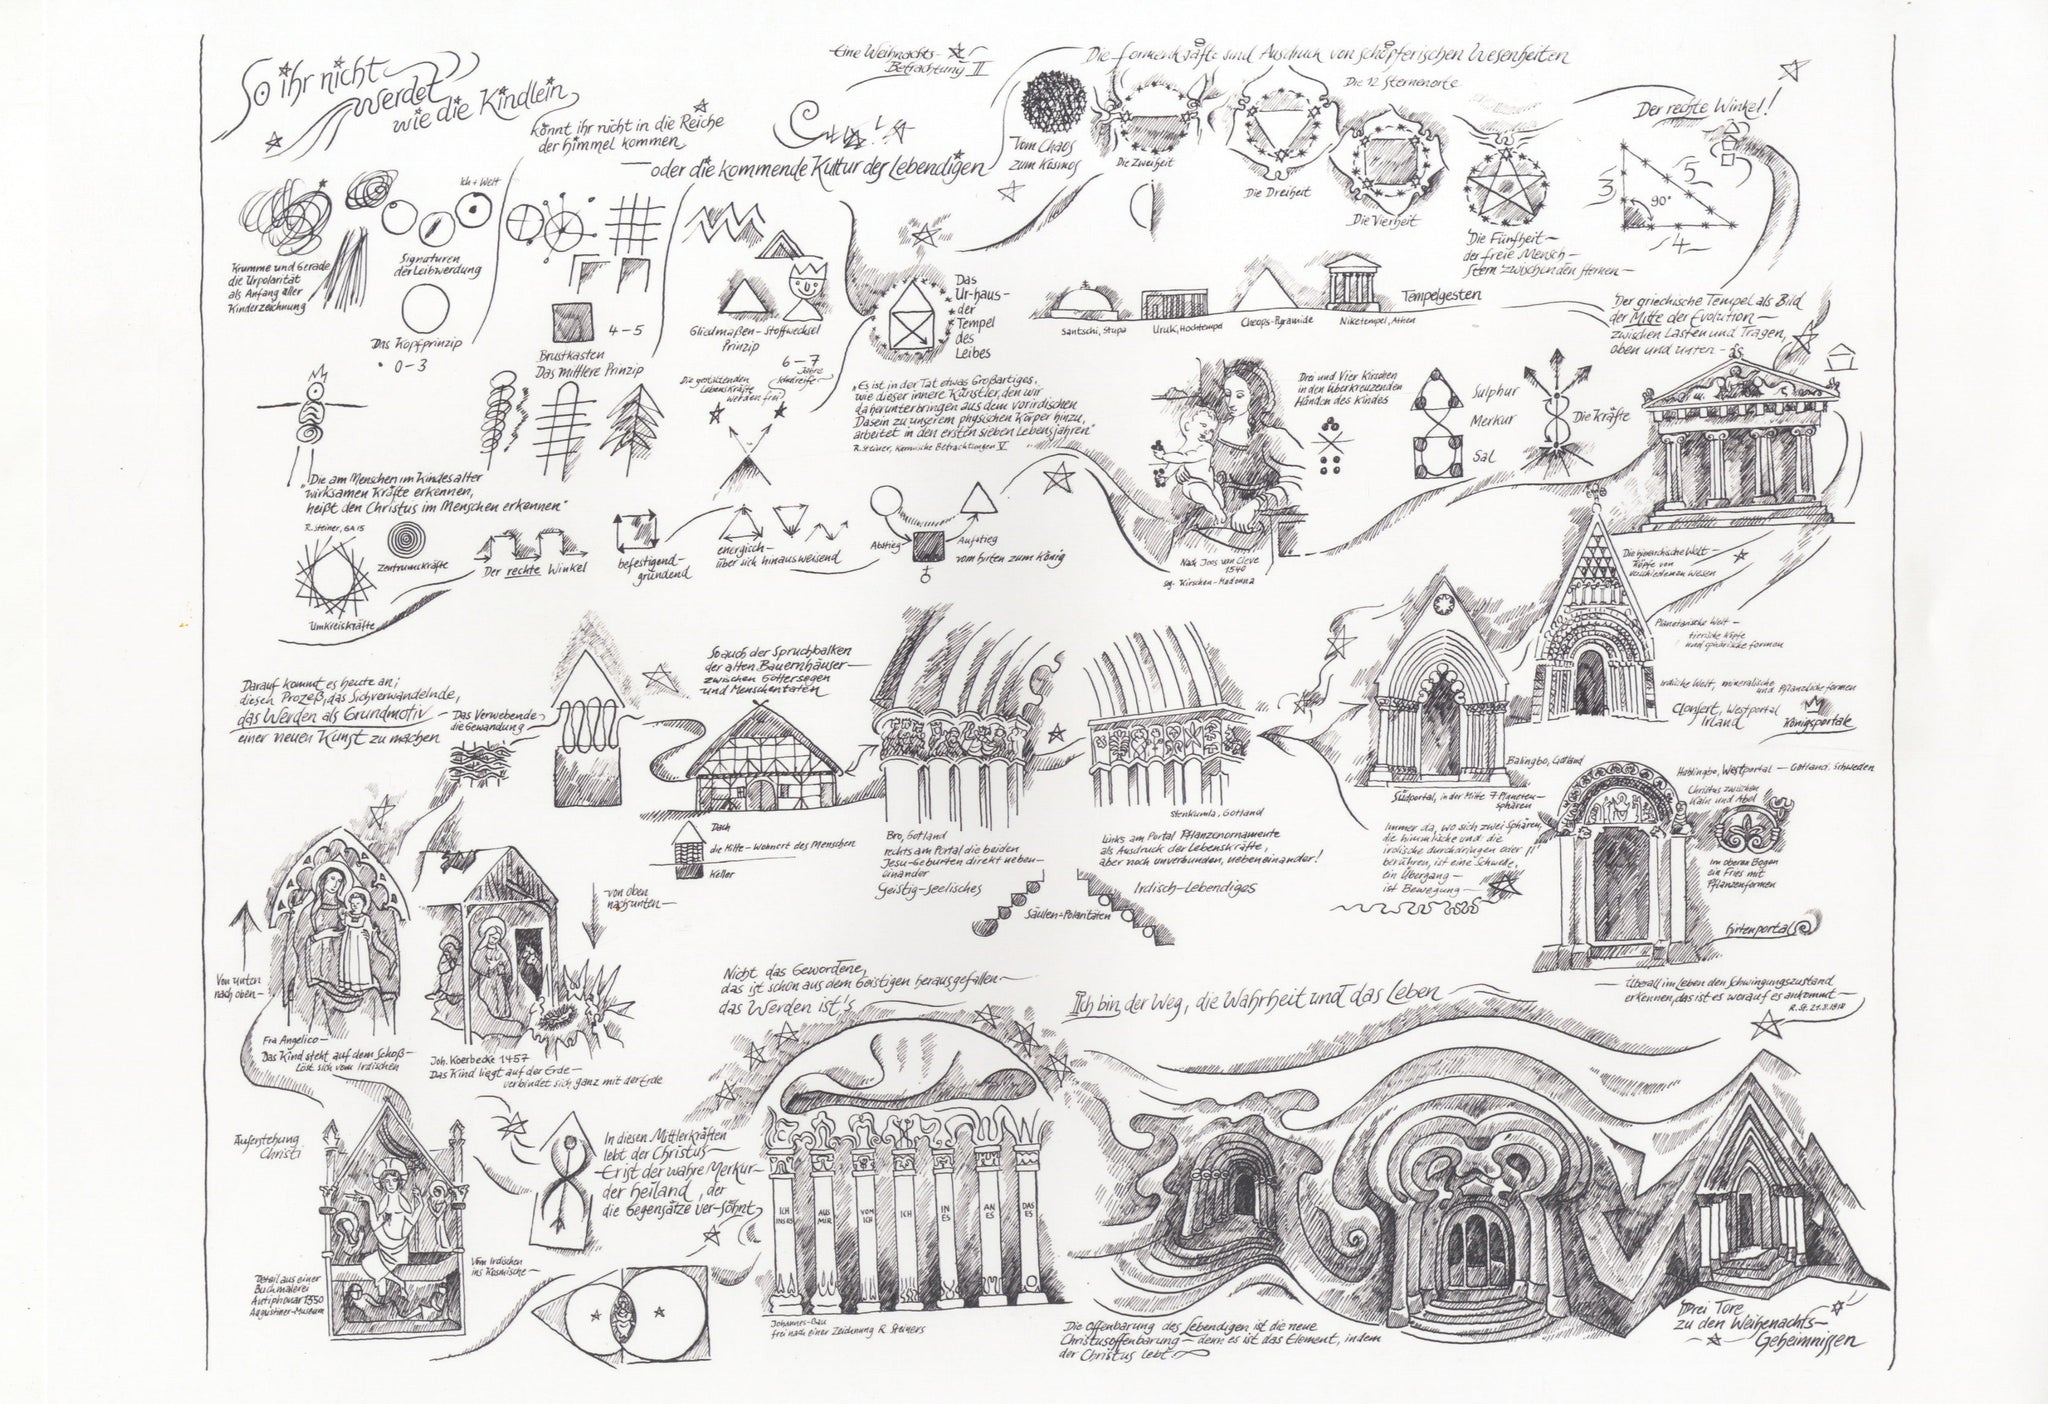 So ihr nicht
werdet
wie die Kindlein
könnt ihr nicht in die Reiche
der Himmel kommen
— oder die kommende Kultur des Lebendigen
Eine Weihnachts-
Betrachtung II
Die Formenkräfte sind Ausdruck von schöpferischen Wesenheiten
Die 12 Sternenorte
Vom Chaos
zum Kosmos
Die Zweiheit
Die Dreiheit
Die Vierheit
Die Fünfheit —
der freie Mensch —
Stern zwischen den Sternen —
Der rechte Winkel!
3
5
90°
4
Krumme und Gerade
die Urpolarität
als Anfang aller
Kinderzeichnung
Ich + Welt
Signaturen
der Leibwerdung
Das Kopfprinzip
0 – 3
4 – 5
Brustkasten
Das mittlere Prinzip
Gliedmaßen – Stoffwechsel
Prinzip
6 – 7
Jahre
Schulreife
Die gestaltenden
Lebenskräfte
werden frei
Das
Ur-haus –
der
Tempel
des
Leibes
Santschi, Stupa
Uruk, Hochtempel
Cheops-Pyramide
Niketempel, Athen
Tempelgesten
Der griechische Tempel als Bild
der Mitte der Evolution —
zwischen Lasten und Tragen,
oben und unten –
„Es ist in der Tat etwas Großartiges,
wie dieser innere Künstler, den wir
da herunterbringen aus dem vorirdischen
Dasein zu unserem physischen Körper hinzu,
arbeitet in den ersten sieben Lebensjahren"
R. Steiner, Karmische Betrachtungen V
Drei und Vier Kirschen
in den überkreuzenden
Händen des Kindes
Sulphur
Merkur
Sal
Die Kräfte
„Die am Menschen im Kindesalter
wirksamen Kräfte erkennen,
heißt den Christus im Menschen erkennen"
R. Steiner, GA 15
Zentrumskräfte
Umkreiskräfte
Der rechte Winkel
befestigend-
gründend
energisch –
über sich hinausweisend
Abstieg
Aufstieg
vom Hirten zum König
Nach Joos van Cleve
1540
sog. Kirschen-Madonna
Die hierarchische Welt —
Köpfe von
verschiedenen Wesen
Planetarische Welt —
tierische Köpfe
und sphärische Formen
Irdische Welt, mineralische
und Pflanzliche Formen
Clonfert, Westportal
Irland
Königsportale
Darauf kommt es heute an;
diesen Prozeß, das Sichverwandelnde,
das Werden als Grundmotiv —
einer neuen Kunst zu machen
Das Verwebende
die Gewandung
So auch der Spruchbalken
der alten Bauernhäuser —
zwischen Göttersegen
und Menschentaten
Dach
die Mitte – Wohnort des Menschen
Keller
Bro, Gotland
rechts am Portal die beiden
Jesu-Geburten direkt neben-
einander
Geistig-seelisches
Stenkumla, Gotland
Links am Portal Pflanzenornamente
als Ausdruck der Lebenskräfte,
aber noch unverbunden, nebeneinander!
Irdisch-Lebendiges
Säulen-Polaritäten
Balingbo, Gotland
Südportal, in der Mitte 7 Planeten-
sphären
Immer da, wo sich zwei Sphären,
die himmlische und die
irdische durchdringen oder
berühren, ist eine Schwelle,
ein Übergang —
ist Bewegung —
Hablingbo, Westportal — Gotland, Schweden
Christus zwischen
Kain und Abel
im oberen Bogen
ein Fries mit
Pflanzenformen
Hirtenportal
— Überall im Leben den Schwingungszustand
erkennen, das ist es worauf es ankommt —
Von unten
nach oben –
Fra Angelico —
Das Kind steht auf dem Schoß —
Löst sich vom Irdischen
– von oben
nach unten –
Joh. Koerbecke 1457
Das Kind liegt auf der Erde —
verbindet sich ganz mit der Erde
Nicht das Gewordene,
das ist schon aus dem Geistigen herausgefallen —
das Werden ist's
Ich bin der Weg, die Wahrheit und das Leben
Auferstehung
Christi
Detail aus einer
Buchmalerei
Antiphonar 1350
Augustiner-Museum
In diesen Mittlerkräften
lebt der Christus —
Er ist der wahre Merkur —
der Heiland, der
die Gegensätze ver-söhnt
Vom Irdischen
ins Kosmische —
ICH
INS ES
AUS
MIR
VOM
ICH
ICH
IN
ES
AN
ES
DAS
ES
Johannes-Bau
frei nach einer Zeichnung R. Steiners
Die Offenbarung des Lebendigen ist die neue
Christusoffenbarung – denn es ist das Element, in dem
der Christus lebt.
Drei Tore
zu den Weihenachts-
Geheimnissen